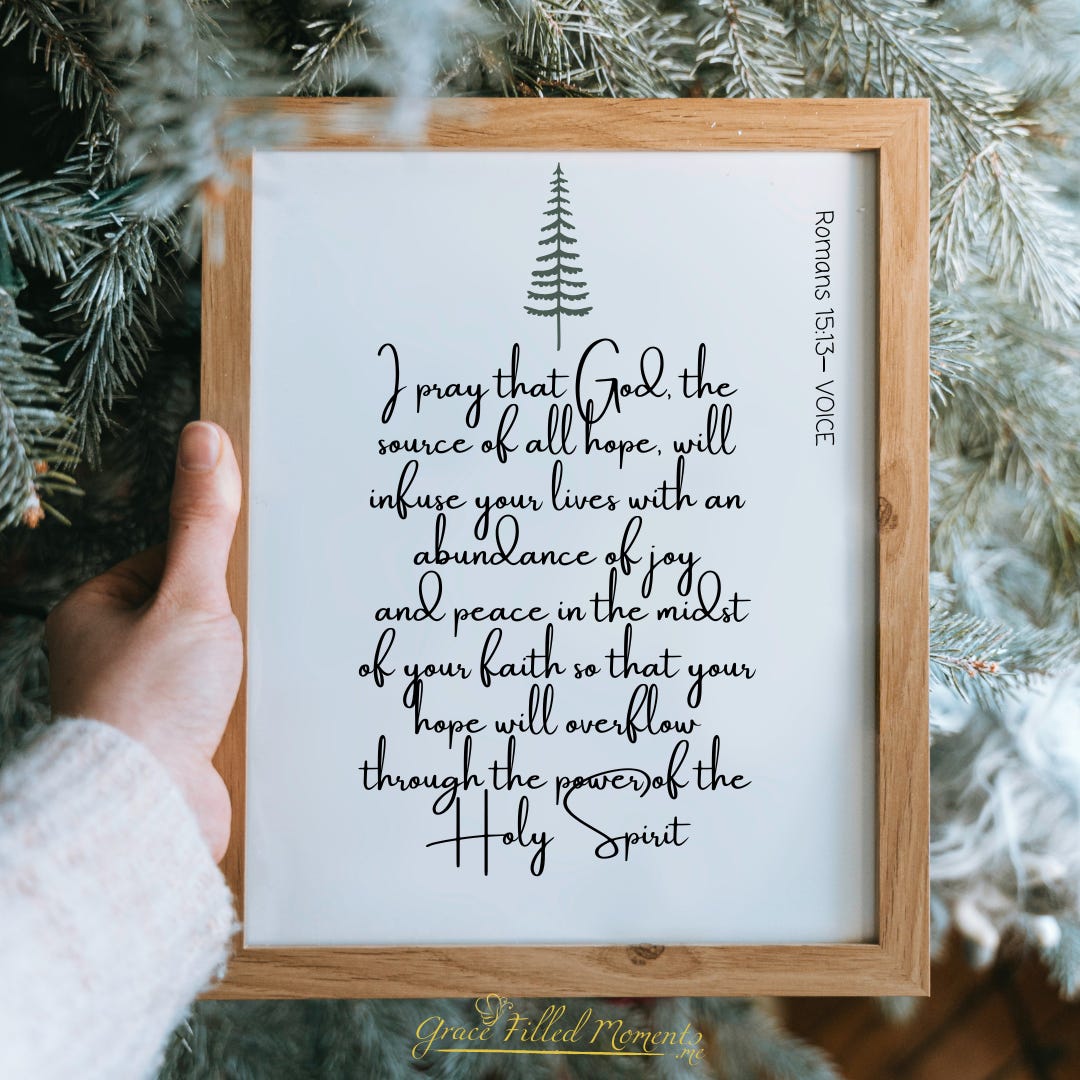 I pray that God, the
source of all hope, will
infuse your lives with an
abundance of joy
and peace in the midst
of your faith so that your
hope will overflow
through the power of the
Holy Spirit
Romans 15:13– VOICE
Grace Filled Moments
.me